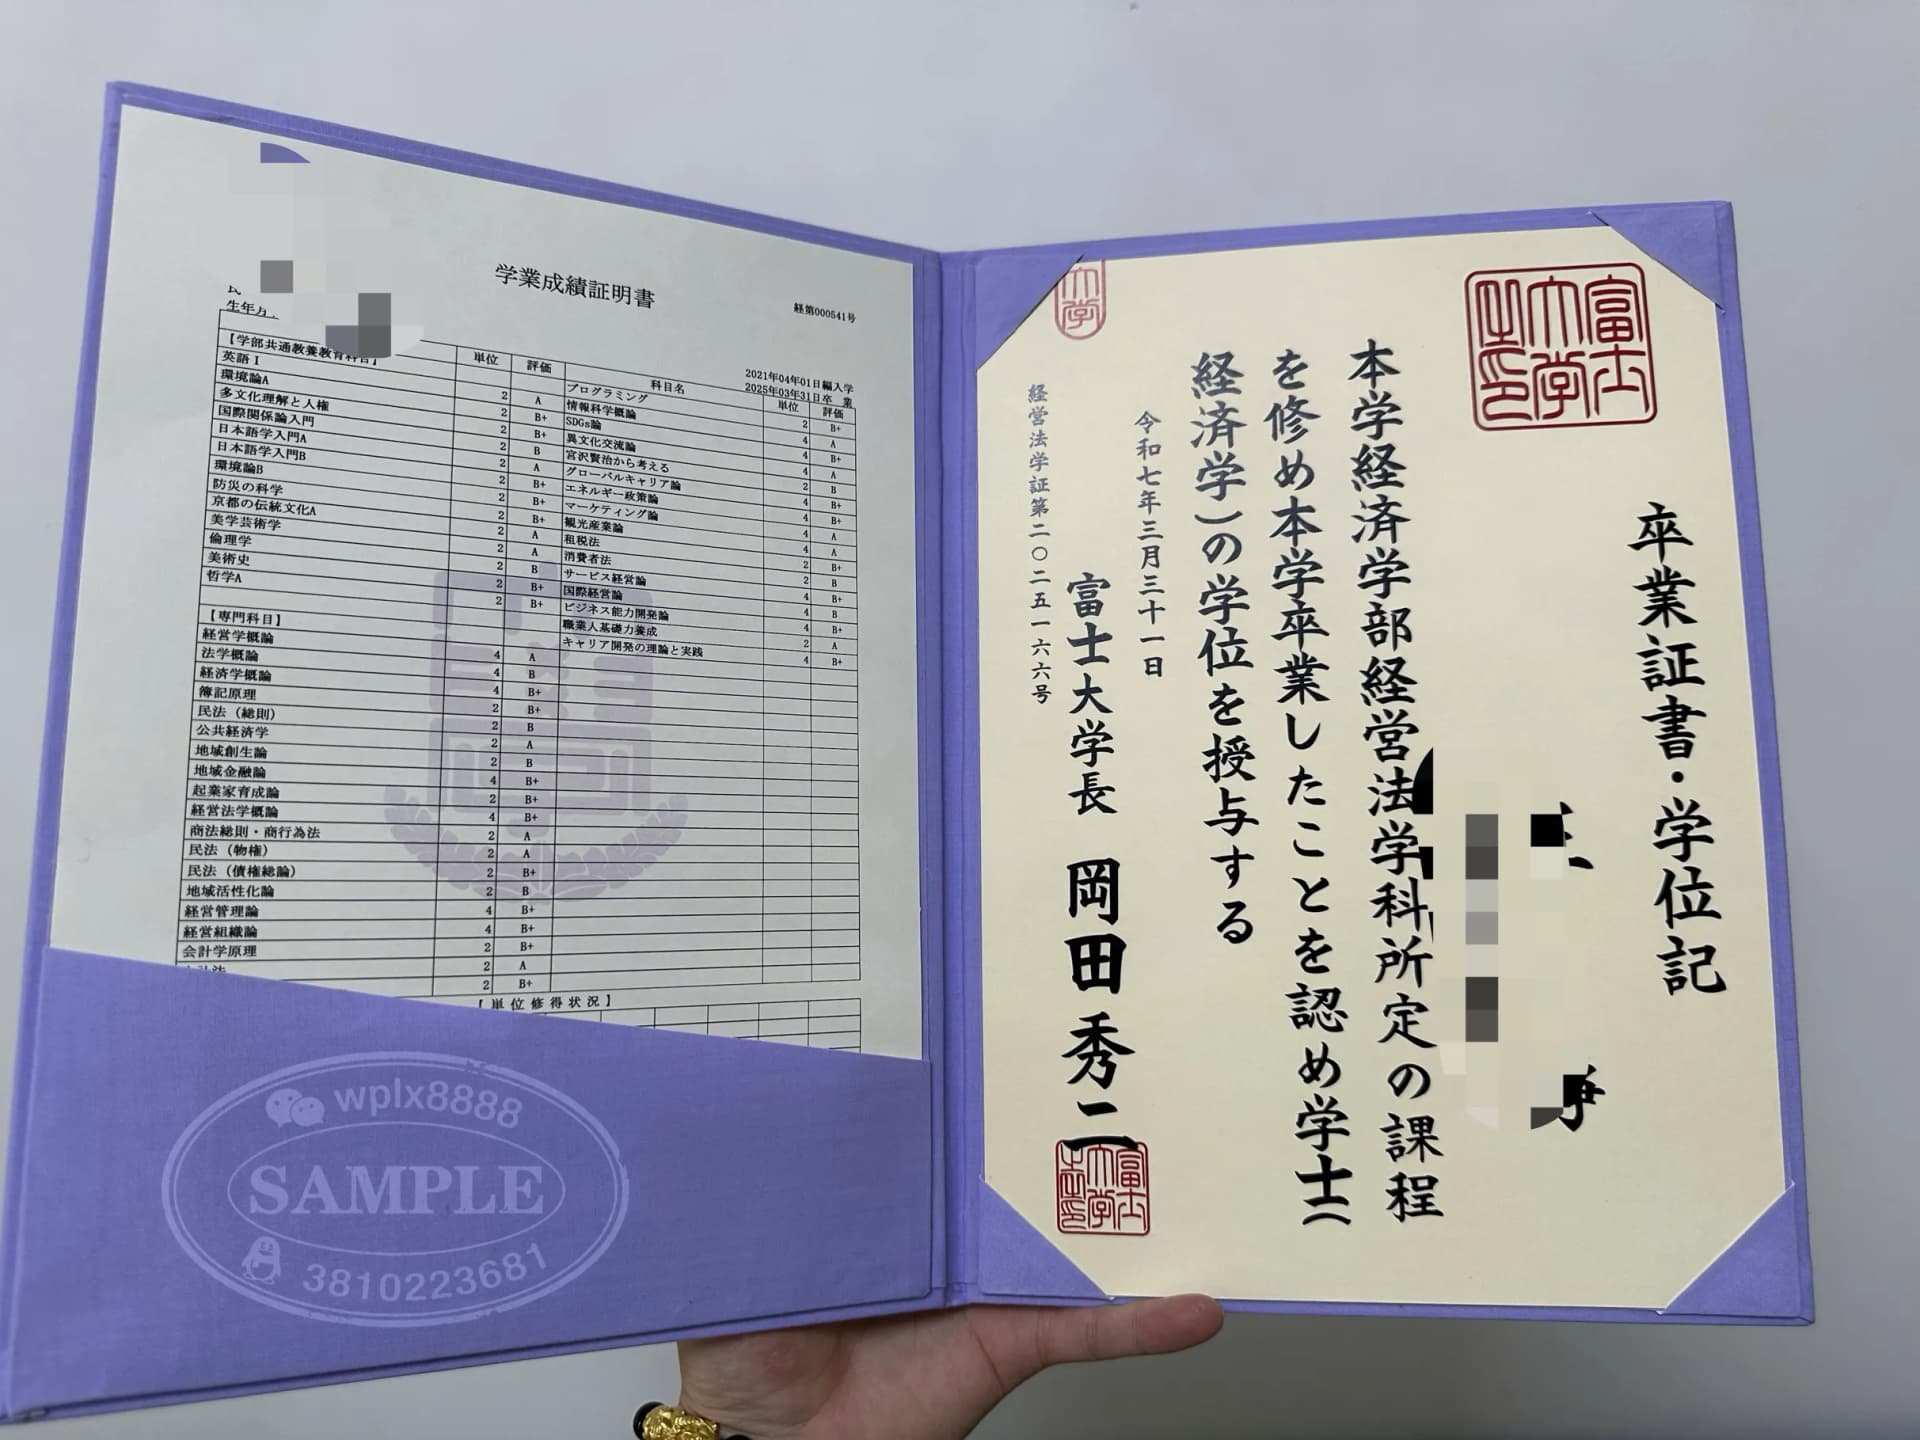 学業成績証明書
経第000541号
生年月
2021年04年01日編入学
2025年03年31日卒 業
単位 評価 科目名 単位 評価
【学部共通教養教育科目】
英語Ⅰ 2 A
環境論A 2 B+
多文化理解と人権 2 B+
国際関係論入門 2 B
日本語学入門A 2 A
日本語学入門B 2 B+
環境論B 2 B+
防災の科学 2 B+
京都の伝統文化A 2 A
美学芸術学 2 A
倫理学 2 B
美術史 2 B+
哲学A 2 B+
【専門科目】
経営学概論 4 A
法学概論 4 B
経済学概論 4 B+
簿記原理 2 B+
民法（総則） 2 B
公共経済学 2 A
地域創生論 2 B
地域金融論 4 B+
起業家育成論 2 B+
経営法学概論 4 B+
商法総則・商行為法 2 A
民法（物権） 2 A
民法（債権総論） 2 B+
地域活性化論 2 B
経営管理論 4 B+
経営組織論 4 B+
会計学原理 2 B+
2 A
2 B+
プログラミング 2 B+
情報科学概論 4 A
SDGs論 4 B+
異文化交流論 4 A
宮沢賢治から考える 2 B
グローバルキャリア論 4 B+
エネルギー政策論 4 B+
マーケティング論 4 A
観光産業論 4 A
租税法 2 B+
消費者法 2 B
サービス経営論 4 B+
国際経営論 4 B
ビジネス能力開発論 4 B+
職業人基礎力養成 2 A
キャリア開発の理論と実践 4 B+
【単位修得状況】
wplx8888
SAMPLE
3810223681
富士
大学
之印
卒業証書・学位記
本学経済学部経営法学科所定の課程
を修め本学卒業したことを認め学士（
経済学）の学位を授与する
令和七年三月三十一日
富士大学長 岡田秀二
富士
大学
之印
経営法学証第二〇二五一六六号
大学